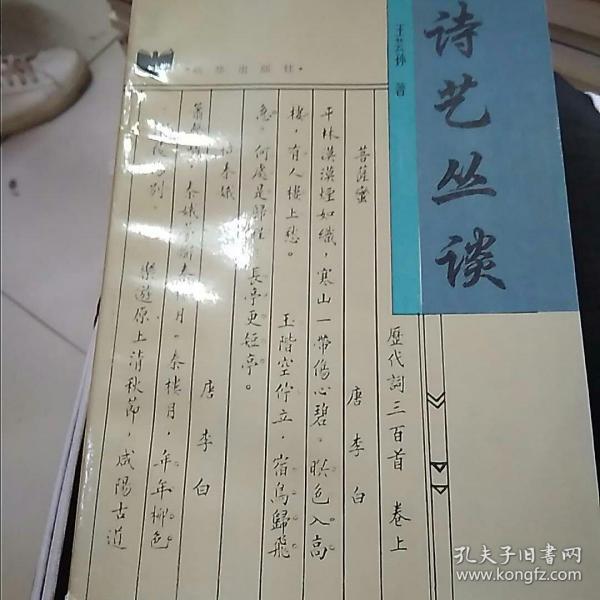 诗艺丛谈
王芸孙 著
出版社
歷代詞三百首 卷上
菩薩蠻 唐 李白
平林漠漠煙如織，寒山一帶傷心碧。暝色入高
樓，有人樓上愁。 玉階空佇立，宿鳥歸飛
急。何處是歸程 長亭更短亭。
秦娥 唐 李白
秦樓月。秦樓月，年年柳色
別。 樂遊原上清秋節，咸陽古道
孔夫子旧书网
www.kongfz.com